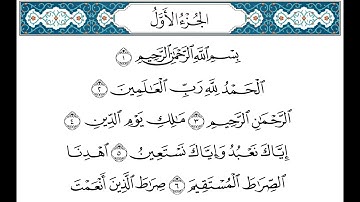 الجُزْءُ الأَوَّلُ
بِسْمِ ٱللَّهِ ٱلرَّحْمَٰنِ ٱلرَّحِيمِ ١
ٱلْحَمْدُ لِلَّهِ رَبِّ ٱلْعَٰلَمِينَ ٢
ٱلرَّحْمَٰنِ ٱلرَّحِيمِ ٣ مَٰلِكِ يَوْمِ ٱلدِّينِ ٤
إِيَّاكَ نَعْبُدُ وَإِيَّاكَ نَسْتَعِينُ ٥ ٱهْدِنَا
ٱلصِّرَٰطَ ٱلْمُسْتَقِيمَ ٦ صِرَٰطَ ٱلَّذِينَ أَنْعَمْتَ